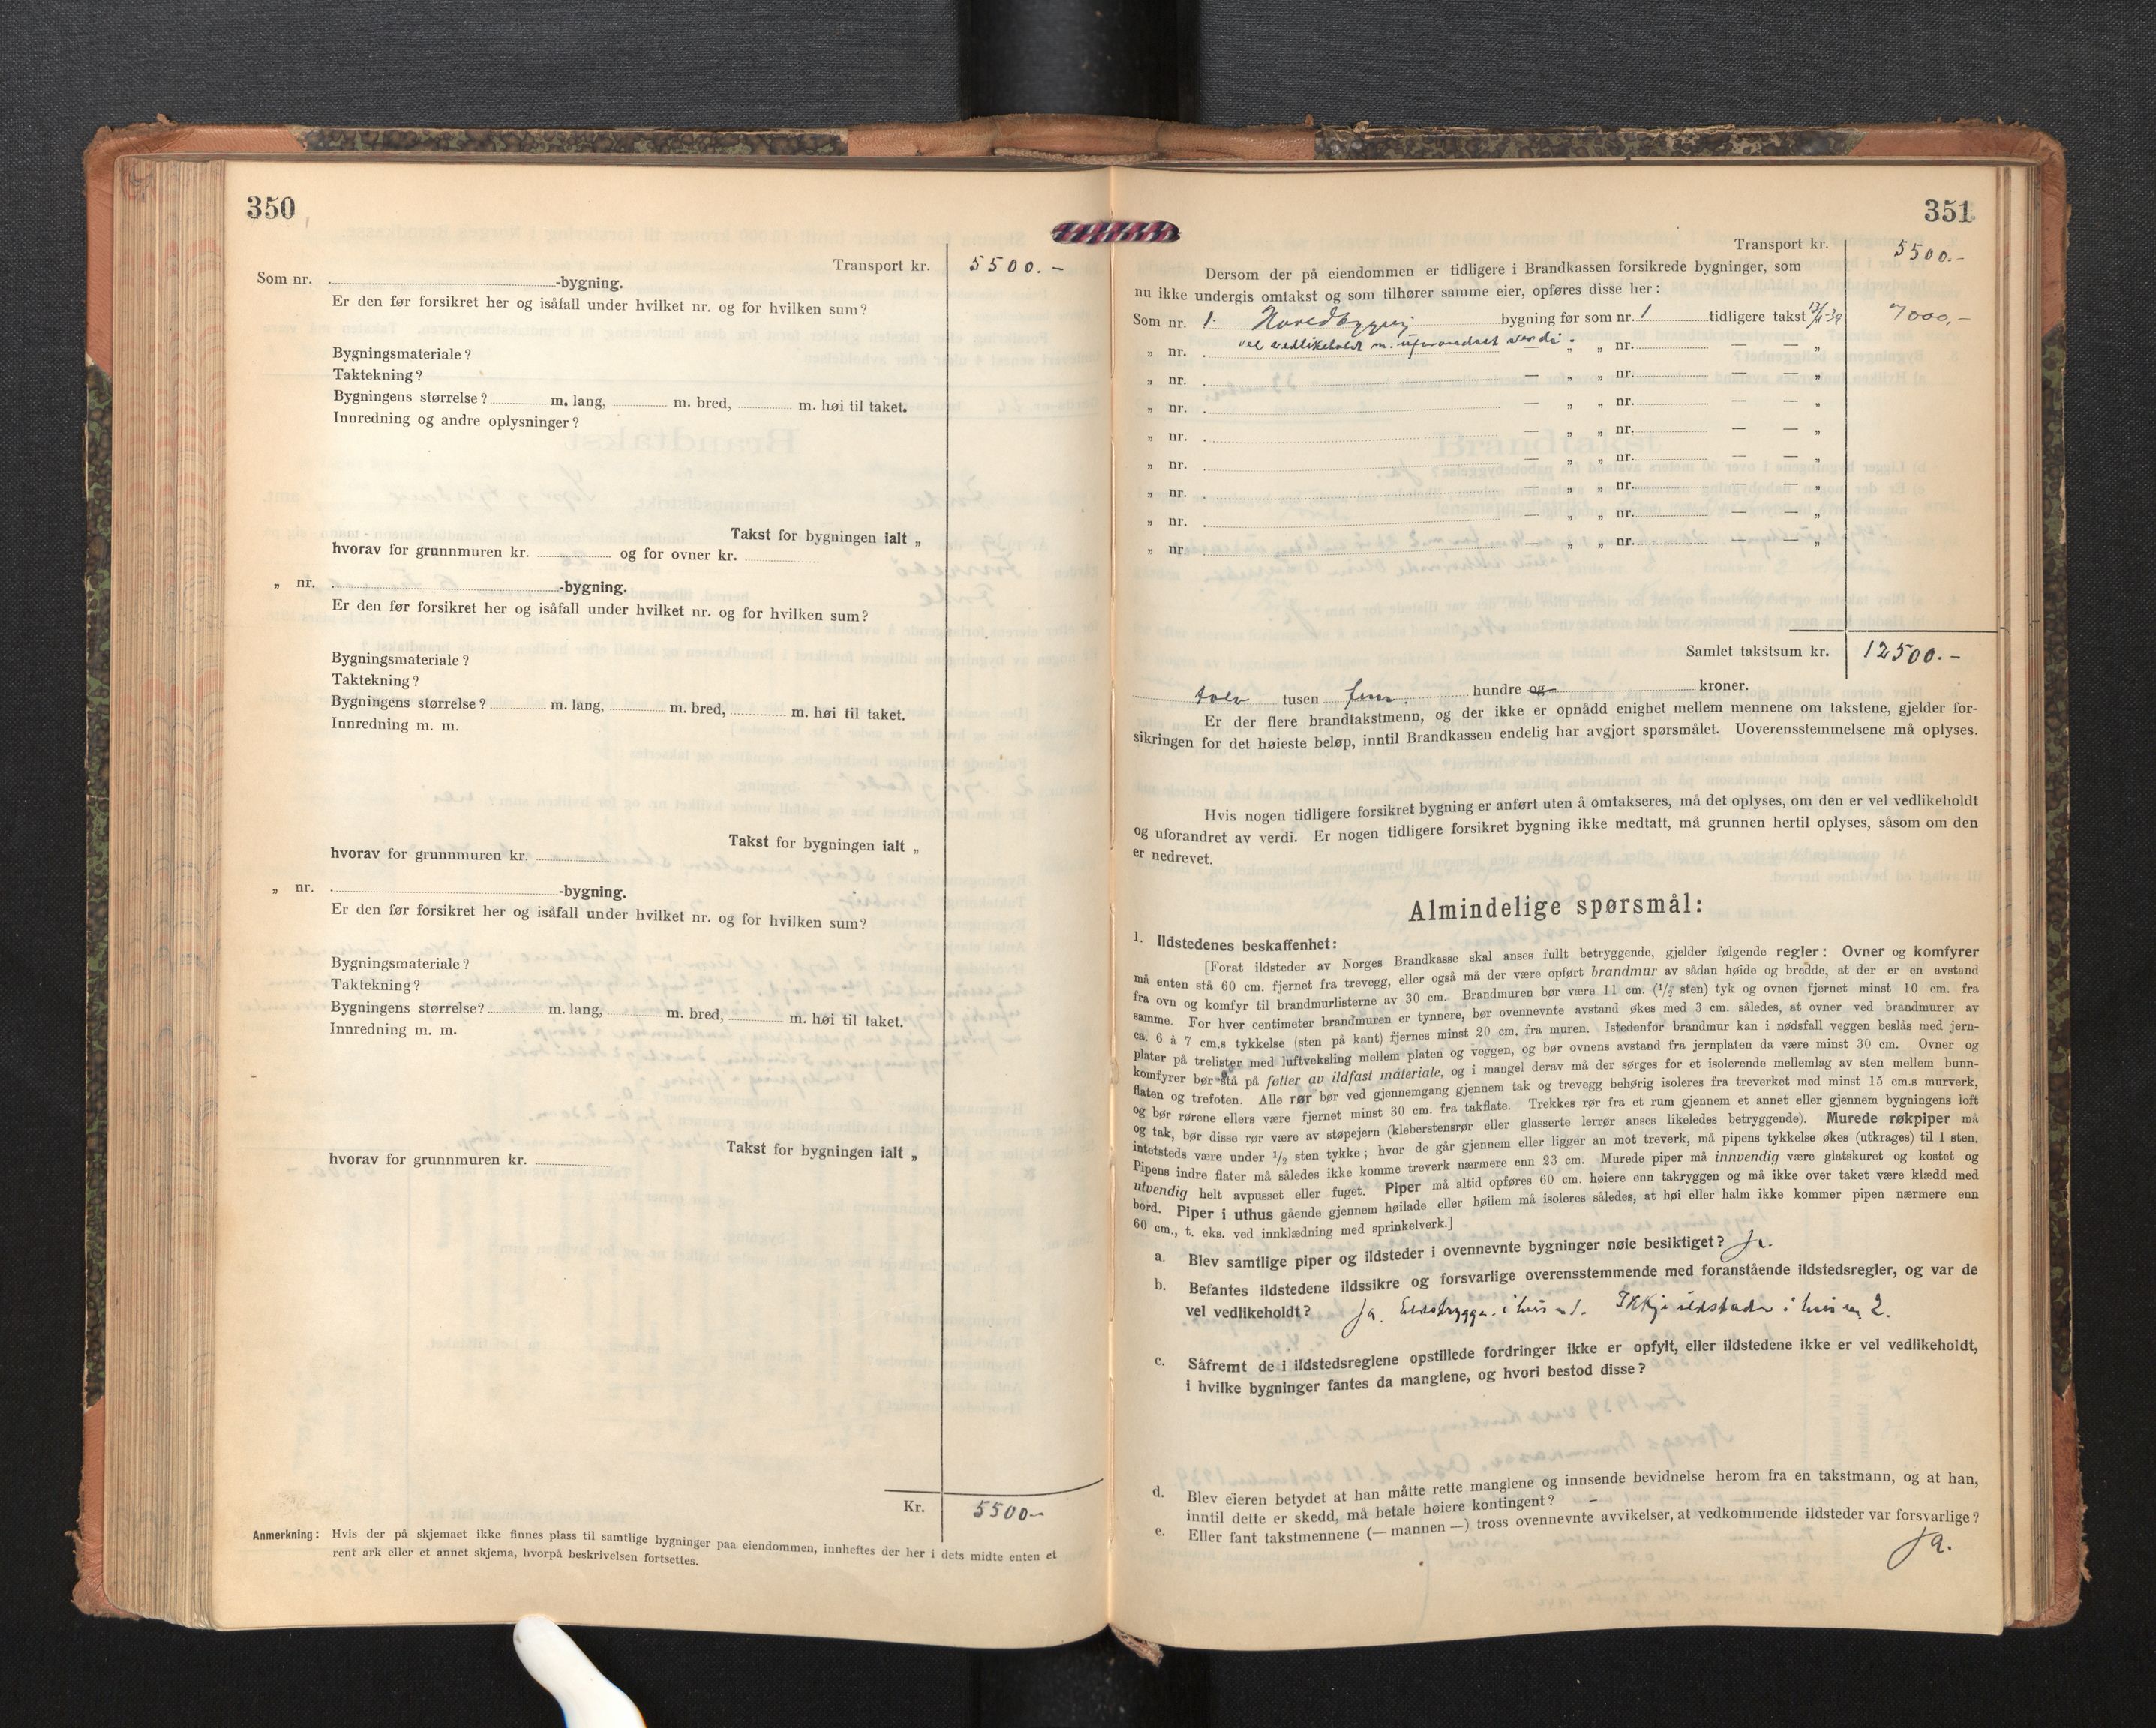 350
Transport kr. 5500.-
Som nr. -bygning.
Er den før forsikret her og isåfall under hvilket nr. og for hvilken sum?
Bygningsmateriale?
Taktekning?
Bygningens størrelse? m. lang, m. bred, m. høi til taket.
Innredning og andre oplysninger?
Takst for bygningen ialt „
hvorav for grunnmuren kr. og for ovner kr.
„ nr. -bygning.
Er den før forsikret her og isåfall under hvilket nr. og for hvilken sum?
Bygningsmateriale?
Taktekning?
Bygningens størrelse? m. lang, m. bred, m. høi til taket.
Innredning m. m.
Takst for bygningen ialt „
hvorav for grunnmuren kr.
„ nr. -bygning.
Er den før forsikret her og isåfall under hvilket nr. og for hvilken sum?
Bygningsmateriale?
Taktekning?
Bygningens størrelse? m. lang, m. bred, m. høi til taket.
Innredning m. m.
Takst for bygningen ialt „
hvorav for grunnmuren kr.
Kr. 5500-
Anmerkning: Hvis der på skjemaet ikke finnes plass til samtlige bygninger paa eiendommen, innheftes der her i dets midte enten et
rent ark eller et annet skjema, hvorpå beskrivelsen fortsettes.
351
Transport kr. 5500.-
Dersom der på eiendommen er tidligere i Brandkassen forsikrede bygninger, som
nu ikke undergis omtakst og som tilhører samme eier, opføres disse her:
Som nr. 1. Hovedbygning bygning før som nr. 1 tidligere takst 7000,-
„ nr. vel vedlikeholdt m. uforandret verdi. „ „ nr. — — „
„ nr. — „ „ nr. — — „
„ nr. — „ „ nr. — — „
„ nr. — „ „ nr. — — „
„ nr. — „ „ nr. — — „
„ nr. — „ „ nr. — — „
„ nr. — „ „ nr. — — „
„ nr — „ „ nr. — — „
Samlet takstsum kr. 12500.-
tolv tusen fem. hundre og kroner.
Er der flere brandtakstmenn, og der ikke er opnådd enighet mellem mennene om takstene, gjelder for-
sikringen for det høieste beløp, inntil Brandkassen endelig har avgjort spørsmålet. Uoverensstemmelsene må oplyses.
Hvis nogen tidligere forsikret bygning er anført uten å omtakseres, må det oplyses, om den er vel vedlikeholdt
og uforandret av verdi. Er nogen tidligere forsikret bygning ikke medtatt, må grunnen hertil oplyses, såsom om den
er nedrevet.
Almindelige spørsmål:
1. Ildstedenes beskaffenhet:
[Forat ildsteder av Norges Brandkasse skal anses fullt betryggende, gjelder følgende regler: Ovner og komfyrer
må enten stå 60 cm. fjernet fra trevegg, eller også må der være opført brandmur av sådan høide og bredde, at der er en avstand
fra ovn og komfyr til brandmurlisterne av 30 cm. Brandmuren bør være 11 cm. (1/2 sten) tyk og ovnen fjernet minst 10 cm. fra
samme. For hver centimeter brandmuren er tynnere, bør ovennevnte avstand økes med 3 cm. således, at ovner ved brandmurer av
ca. 6 à 7 cm.s tykkelse (sten på kant) fjernes minst 20 cm. fra muren. Istedenfor brandmur kan i nødsfall veggen beslås med jern-
plater på trelister med luftveksling mellem platen og veggen, og bør ovnens avstand fra jernplaten da være minst 30 cm. Ovner og
komfyrer bør stå på føtter av ildfast materiale, og i mangel derav må der sørges for et isolerende mellemlag av sten mellem bunn-
flaten og trefoten. Alle rør bør ved gjennemgang gjennem tak og trevegg behørig isoleres fra treverket med minst 15 cm.s murverk,
og bør rørene ellers være fjernet minst 30 cm. fra takflate. Trekkes rør fra et rum gjennem et annet eller gjennem bygningens loft
og tak, bør disse rør være av støpejern (kleberstensrør eller glasserte lerrør anses likeledes betryggende). Murede røkpiper må
intetsteds være under 1/2 sten tykke; hvor de går gjennem eller ligger an mot treverk, må pipens tykkelse økes (utkrages) til 1 sten.
Pipens indre flater må således ikke komme treverk nærmere enn 23 cm. Murede piper må innvendig være glatskuret og kostet og
utvendig helt avpusset eller fuget. Piper må altid opføres 60 cm. høiere enn takryggen og må ikke over taket være klædd med
bord. Piper i uthus gående gjennem høilade eller høilem må isoleres således, at høi eller halm ikke kommer pipen nærmere enn
60 cm., t. eks. ved innklædning med sprinkelverk.]
a. Blev samtlige piper og ildsteder i ovennevnte bygninger nøie besiktiget? Ja.
b. Befantes ildstedene ildssikre og forsvarlige overensstemmende med foranstående ildstedsregler, og var de
vel vedlikeholdt? Ja. i hus nr 1. Ikkje eldstader i hus nr 2.
c. Såfremt de i ildstedsreglene opstillede fordringer ikke er opfylt, eller ildstedene ikke er vel vedlikeholdt,
i hvilke bygninger fantes da manglene, og hvori bestod disse?
d. Blev eieren betydet at han måtte rette manglene og innsende bevidnelse herom fra en takstmann, og at han,
inntil dette er skedd, må betale høiere kontingent? –
e. Eller fant takstmennene (— mannen —) tross ovennevnte avvikelser, at vedkommende ildsteder var forsvarlige?
Ja.